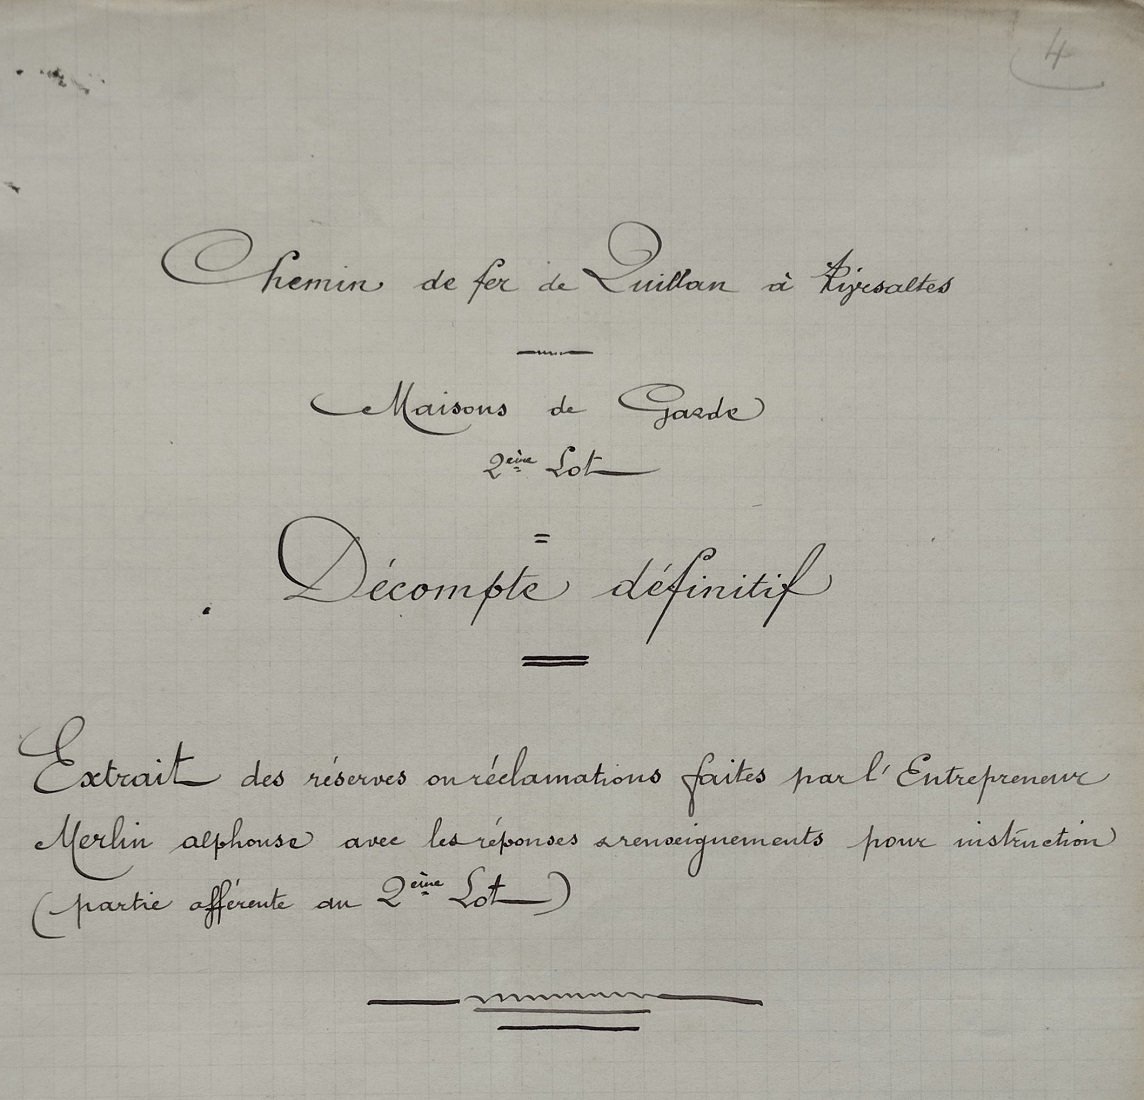 4
Chemin de fer de Quillan à Rivesaltes
Maisons de Garde
2ème Lot
Décompte définitif
Extrait des réserves ou réclamations faites par l'Entrepreneur
Merlin alphonse avec les réponses & renseignements pour instruction
(partie afférente au 2ème Lot)